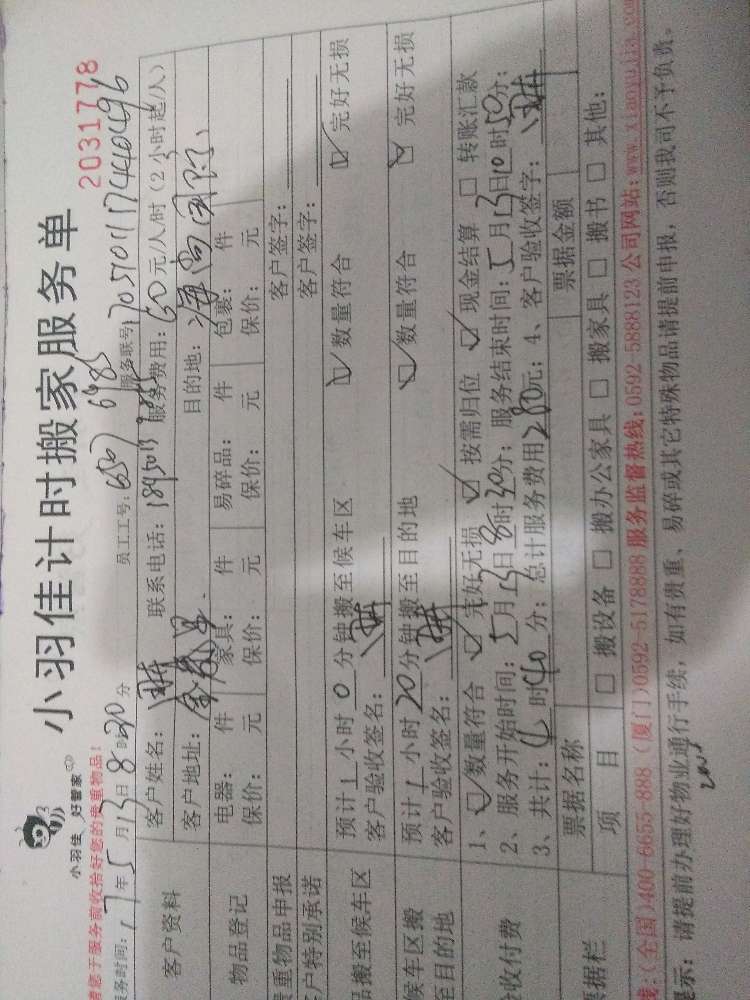 小羽佳计时搬家服务单
小羽佳 好管家
2031778
请您于服务前收拾好您的贵重物品!
服务时间:17年5月13日8时20分 员工工号: 服务联号
客户资料
客户姓名: 联系电话: 服务费用:60元/人/时(2小时起/人)
客户地址: 目的地:海尚国际
物品登记
电器: 件 家具: 件 易碎品: 件 包裹: 件
保价: 元 保价: 元 保价: 元 保价: 元
贵重物品申报 客户签字:
客户特别承诺 客户签字:
品搬至候车区
预计1小时0分钟搬至候车区 数量符合 完好无损
客户验收签名:
候车区搬至目的地
预计1小时20分钟搬至目的地 数量符合 完好无损
客户验收签名:
收付费
1、数量符合 完好无损 按需归位 现金结算 转账汇款
2、服务开始时间:5月13日8时30分;服务结束时间:5月13日10时50分;
3、共计:4时40分;总计服务费用280元;4、客户验收签字:
票据栏
票据名称 票据金额
项目 搬设备 搬办公家具 搬家具 搬书 其他:
线:(全国)400-6655-888 (厦门)0592-5178888 服务监督热线:0592-5888123 公司网站:www.xiaoyujia.co
提示:请提前办理好物业通行手续,如有贵重、易碎或其它特殊物品请提前申报,否则我司不予负责。